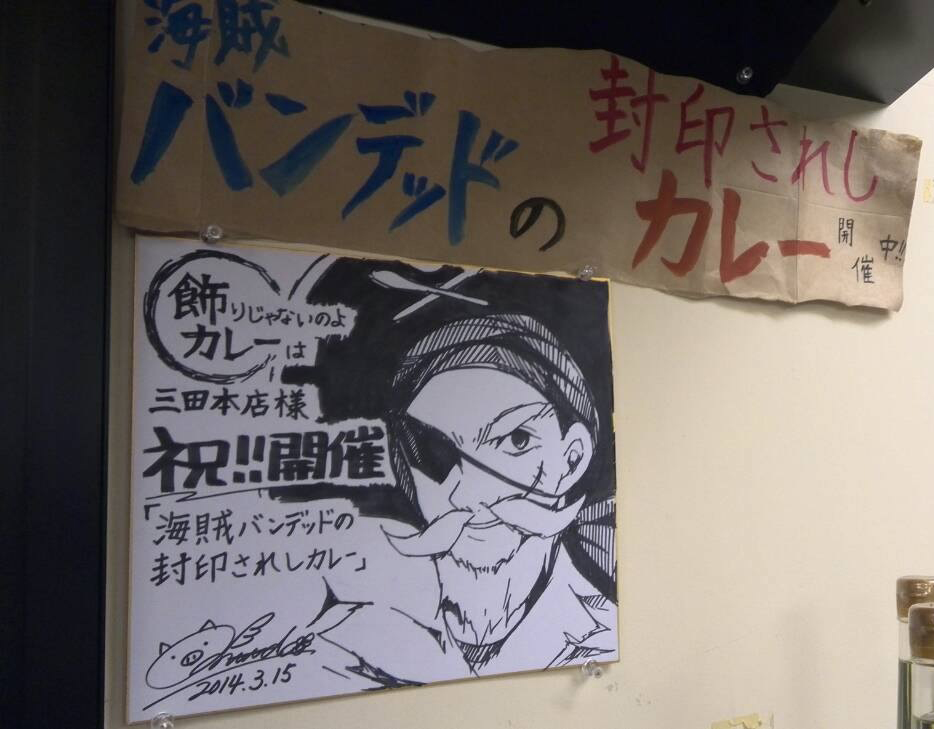 海賊
バンデッドの
封印されし
カレー
開催中!!
飾りじゃないのよ
カレーは
三田本店様
祝!!開催
「海賊バンデッドの
封印されしカレー」
2014.3.15